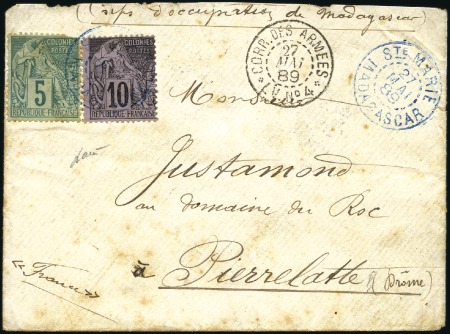 (Corps d'occupation de Madagascar)
COLONIES
5
RÉPUBLIQUE FRANÇAISE
COLONIES
10
RÉPUBLIQUE FRANÇAISE
CORR. DES ARMÉES
27
MAI
89
N° 4
STE MARIE
27
MAI
89
MADAGASCAR
Monsieur
Justamond
au domaine du Roc
à Pierrelatte (Drôme)
« France »